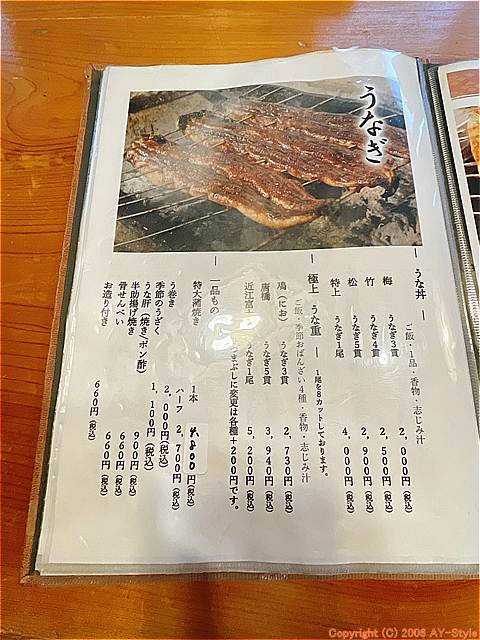 うなぎ
― うな丼 ―
ご飯・1品・香物・志じみ汁
梅 うなぎ3貫 2,000円(税込)
竹 うなぎ4貫 2,500円(税込)
松 うなぎ5貫 2,900円(税込)
特上 うなぎ1尾 4,000円(税込)
― 極上 うな重 ― 1尾を8カットしております。
ご飯・季節おばんざい4種・香物・志じみ汁
鳰(にお) うなぎ3貫 2,730円(税込)
唐橋 うなぎ5貫 3,940円(税込)
近江富士 うなぎ1尾 5,200円(税込)
まぶしに変更は各種+200円です。
― 一品もの ―
特大蒲焼き 1本 4,800円(税込)
ハーフ 2,700円(税込)
う巻き 2,000円(税込)
季節のうざく 1,100円(税込)
うな肝(焼き・ポン酢) 900円(税込)
半助揚げ焼き 660円(税込)
骨せんべい 660円(税込)
お造り付き 660円(税込)
Copyright (C) 2006 AY-Style